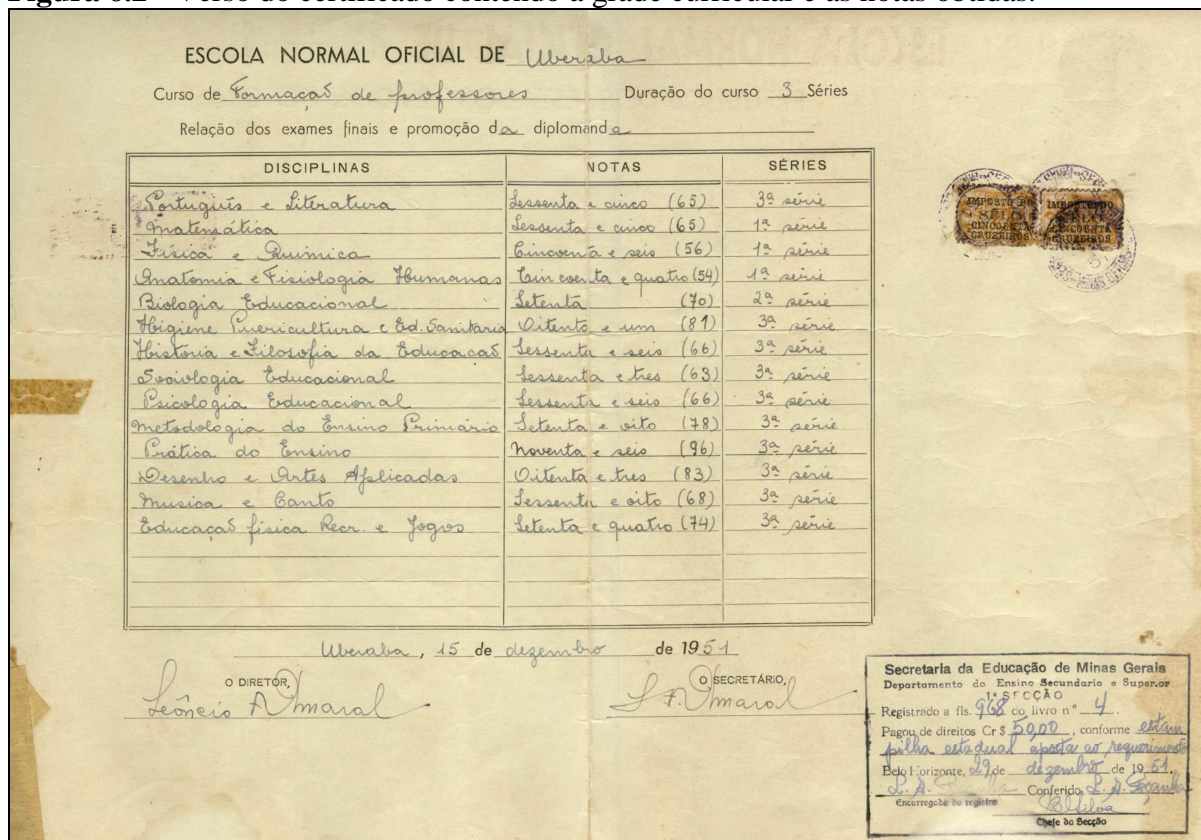 ESCOLA NORMAL OFICIAL DE Uberaba
Curso de Formação de professores Duração do curso 3 Séries
Relação dos exames finais e promoção da diplomanda
DISCIPLINAS NOTAS SÉRIES
Português e Literatura Sessenta e cinco (65) 3ª série
Matemática Sessenta e cinco (65) 1ª série
Física e Quimica Cincoenta e seis (56) 1ª série
Anatomia e Fisiologia Humanas Cincoenta e quatro (54) 1ª série
Biologia Educacional Setenta (70) 2ª série
Higiene Puericultura e Ed. Sanitaria Oitenta e um (81) 3ª série
Historia e Filosofia da Educacaõ Sessenta e seis (66) 3ª série
Sociologia Educacional Sessenta e tres (63) 3ª série
Psicologia Educacional Sessenta e seis (66) 3ª série
Metodologia do Ensino Primário Setenta e oito (78) 3ª série
Prática do Ensino Noventa e seis (96) 3ª série
Desenho e Artes Aplicadas Oitenta e tres (83) 3ª série
Musica e Canto Sessenta e oito (68) 3ª série
Educaçaõ física Recr. e Jogos Setenta e quatro (74) 3ª série
IMPOSTO DO SELO CINCOENTA CRUZEIROS
Uberaba, 15 de dezembro de 1951
O DIRETOR, O SECRETÁRIO,
Leôncio A Amaral
Amaral
Secretaria da Educação de Minas Gerais
Departamento do Ensino Secundario e Superior
1ª SECÇÃO
Registrado a fls. 968 do livro nº 4.
Pagou de direitos Cr$ 50,00, conforme estam
pilha estadual aposta ao requerimento
Belo Horizonte, 29 de dezembro de 1951.
L. A. Conferido, L. A.
Encarregado do registro
Silva
Chefe da Secção